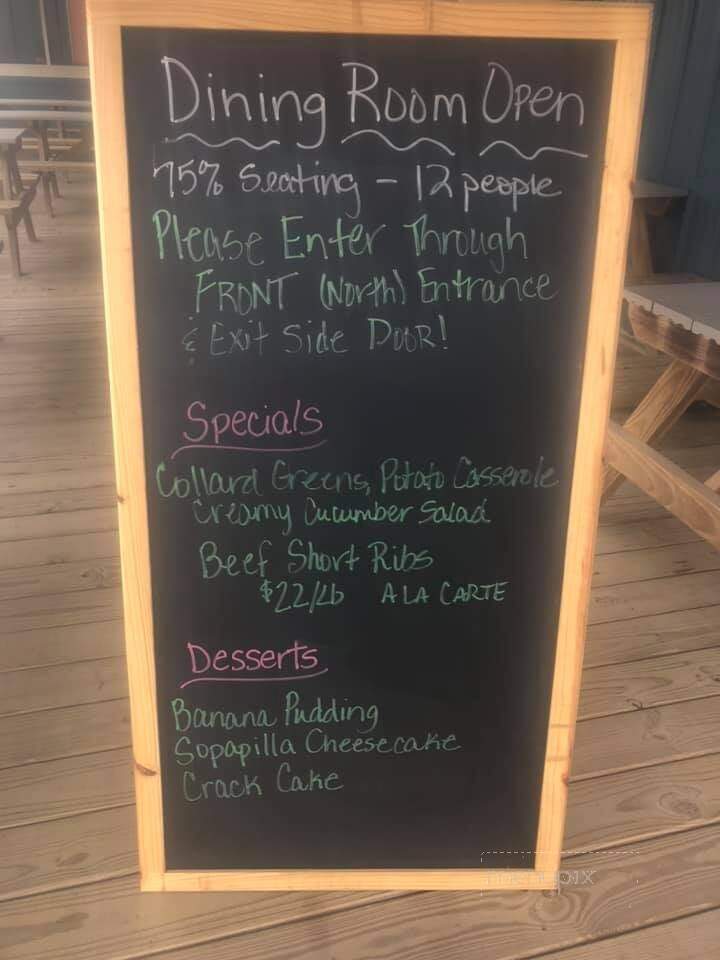 Dining Room Open
75% Seating - 12 people
Please Enter Through
FRONT (North) Entrance
& Exit Side Door!
Specials
Collard Greens, Potato Casserole
Creamy Cucumber Salad
Beef Short Ribs
$22/Lb A LA CARTE
Desserts
Banana Pudding
Sopapilla Cheesecake
Crack Cake